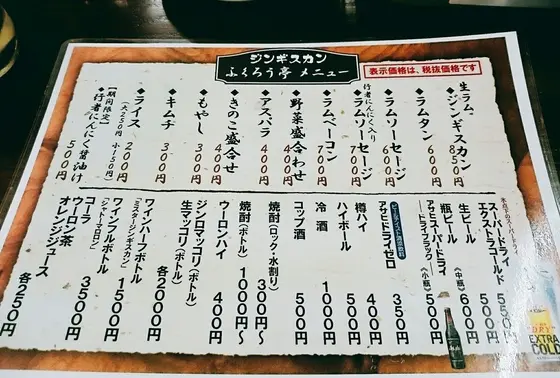 ジンギスカン
ふくろう亭 メニュー
表示価格は、税抜価格です
◆生ラムジンギスカン 850円
◆ラムタン 600円
◆ラムソーセージ 600円
◆行者にんにく入りラムソーセージ 700円
◆ラムベーコン 700円
◆野菜盛合わせ 400円
◆アスパラ 400円
◆きのこ盛合せ 400円
◆もやし 300円
◆キムチ 300円
◆ライス 200円
(大250円 小150円)
【期間限定】
◆行者にんにく醤油け 500円
スーパードライ
エクストラコールド 550円
生ビール (中瓶) 500円
瓶ビール 600円
アサヒスーパードライ
―ドライブラック― (小瓶) 500円
ビールテイスト清涼飲料
アサヒドライゼロ 350円
樽ハイ 400円
ハイボール 500円
冷酒 1000円
コップ酒 500円
焼酎(ロック・水割り) 300円〜
焼酎(ボトル) 1000円〜
ウーロンハイ 400円
ジンロマッコリ(ボトル)
生マッコリ(ボトル) 各2000円
ワインハーフボトル
(ミスタージンギスカン) 1500円
ワインフルボトル
(シャトーマロン) 3500円
コーラ
ウーロン茶
オレンジジュース 各250円
DRY
EXTRA
COLD